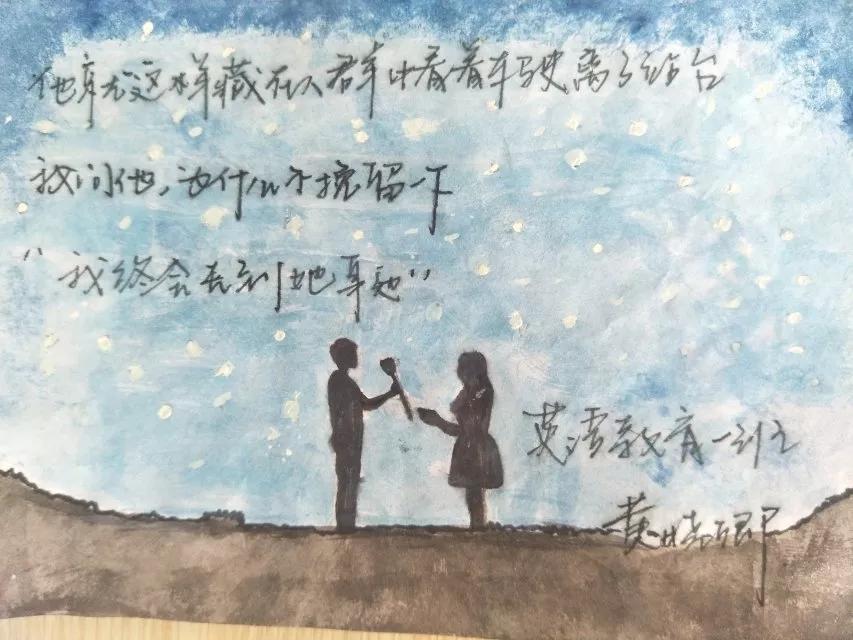 他就这样藏在人群中看着车驶离了站台
我问他，为什么不挽留一下
“我终会去到她身边”
英语教育一班
黄晓卿